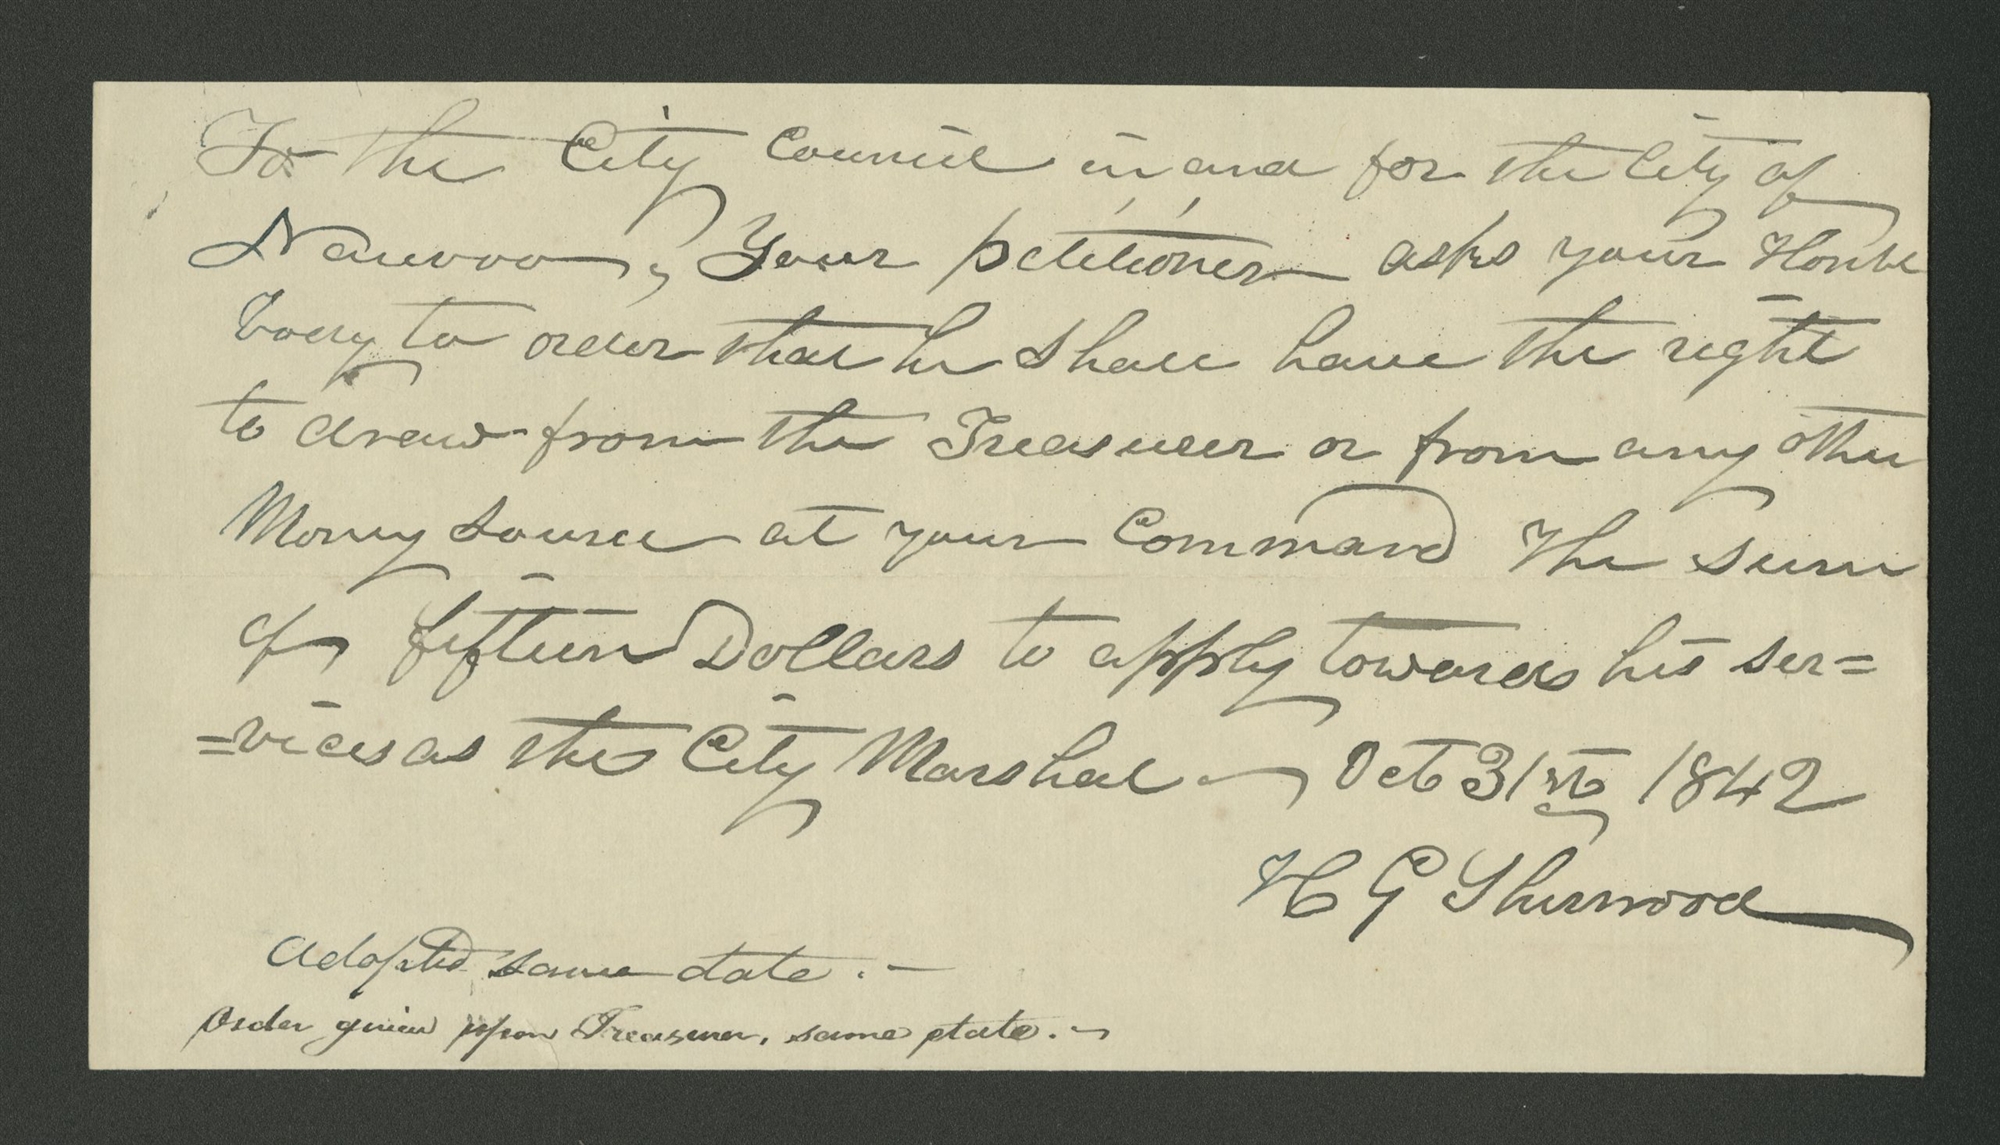 To the City Council in, and for the City of
Nauvoo, Your petitioner asks your Honbe
body to order that he shall have the right
to draw from the Treasurer or from any other
Money source at your Command the sum
of fifteen Dollars to apply towards his ser=
=vices as the City Marshal — Oct 31st 1842
H G Sherwood
Adopted same date. —
Order given upon Treasurer, same date. —